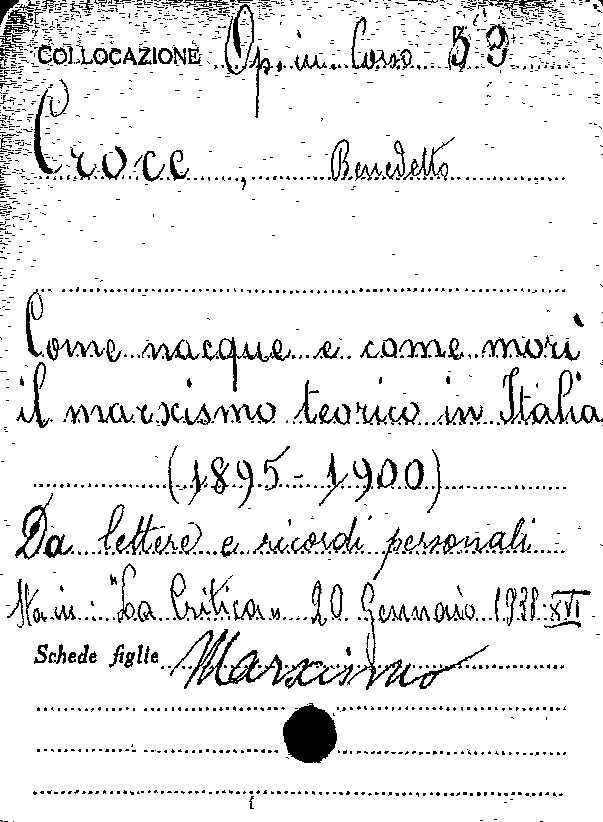 COLLOCAZIONE Op. in Corso 5 3
Croce, Benedetto
Come nacque e come morì
il marxismo teorico in Italia
(1895-1900)
Da lettere e ricordi personali
Sta in: "La Critica" 20 Gennaio 1938-XVI
Schede figlie Marxismo